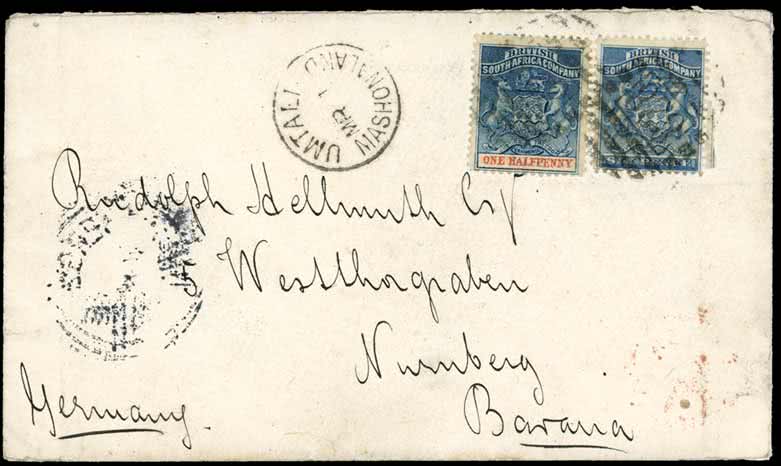 BRITISH
SOUTH AFRICA COMPANY
ONE HALFPENNY
BRITISH
SOUTH AFRICA COMPANY
UMTALI MASHONALAND
MR 1
Rudolph Hellmuth Esq
5 Westthorgraben
Nurnberg
Germany.
Bavaria